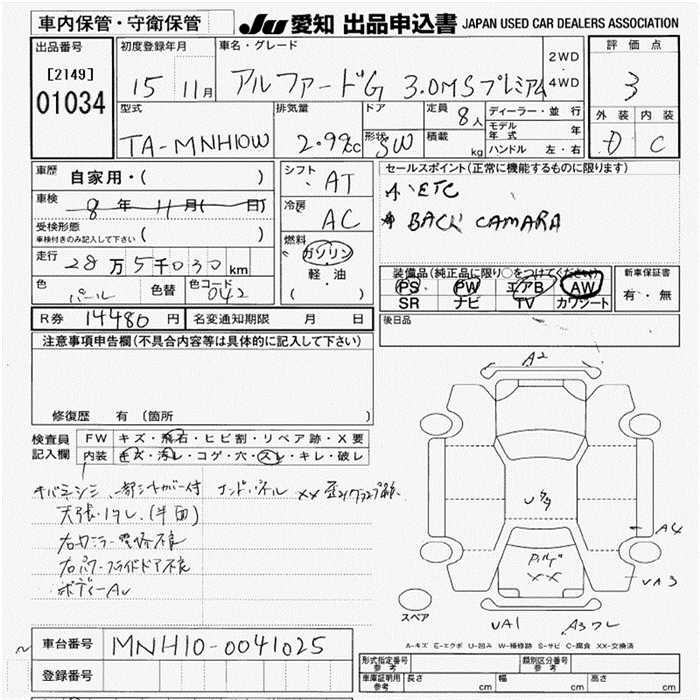 車内保管・守衛保管 JU 愛知 出品申込書 JAPAN USED CAR DEALERS ASSOCIATION
出品番号 初度登録年月 車名・グレード 評価点
[2149] 15 11月 アルファードG 3.0MSプレミアム 2WD・4WD 3
01034 外装 内装
型式 排気量 ドア 定員 8人 ディーラー・並行
TA-MNH10W 2.99cc 形状 SW 積載 kg モデル年式 年 D C
ハンドル 左・右
車歴 自家用・( ) シフト AT セールスポイント(正常に機能するものに限ります)
車検 8年11月( 日) 冷房 AC ETC
受検形態 車検付きのみ記入して下さい ( ) BACK CAMARA
走行 28万5千030km 燃料 ガソリン 軽油 ( )
色 パール 色替 色コード 042
装備品(純正品に限り○をつけてください) 新車保証書
PS PW エアB AW 有・無
SR ナビ TV カワシート
R券 14480円 名変通知期限 月 日 後日品
注意事項申告欄(不具合内容等は具体的に記入して下さい)
修復歴 有 (箇所 )
検査員記入欄 FW キズ・飛石・ヒビ割・リペア跡・X要
内装 キズ・汚レ・コゲ・穴・スレ・キレ・破レ
A2
天張・ワレ(半面)
A4
XX
UA3
スペア
UA1
A-キズ E-エクボ U-凹み W-補修跡 S-サビ C-腐食 XX-交換済
車台番号 MNH10-0041025
登録番号
形式指定番号 参考 類別区分番号 参考
車庫証明用 参考 長さ cm 幅 cm 高さ cm